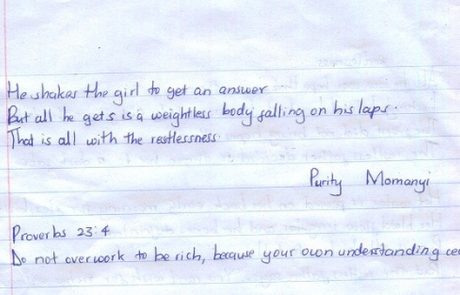 He shakes the girl to get an answer
But all he gets is a weightless body falling on his laps.
That is all with the restlessness.
Purity Momanyi
Proverbs 23:4
Do not overwork to be rich, because your own understanding